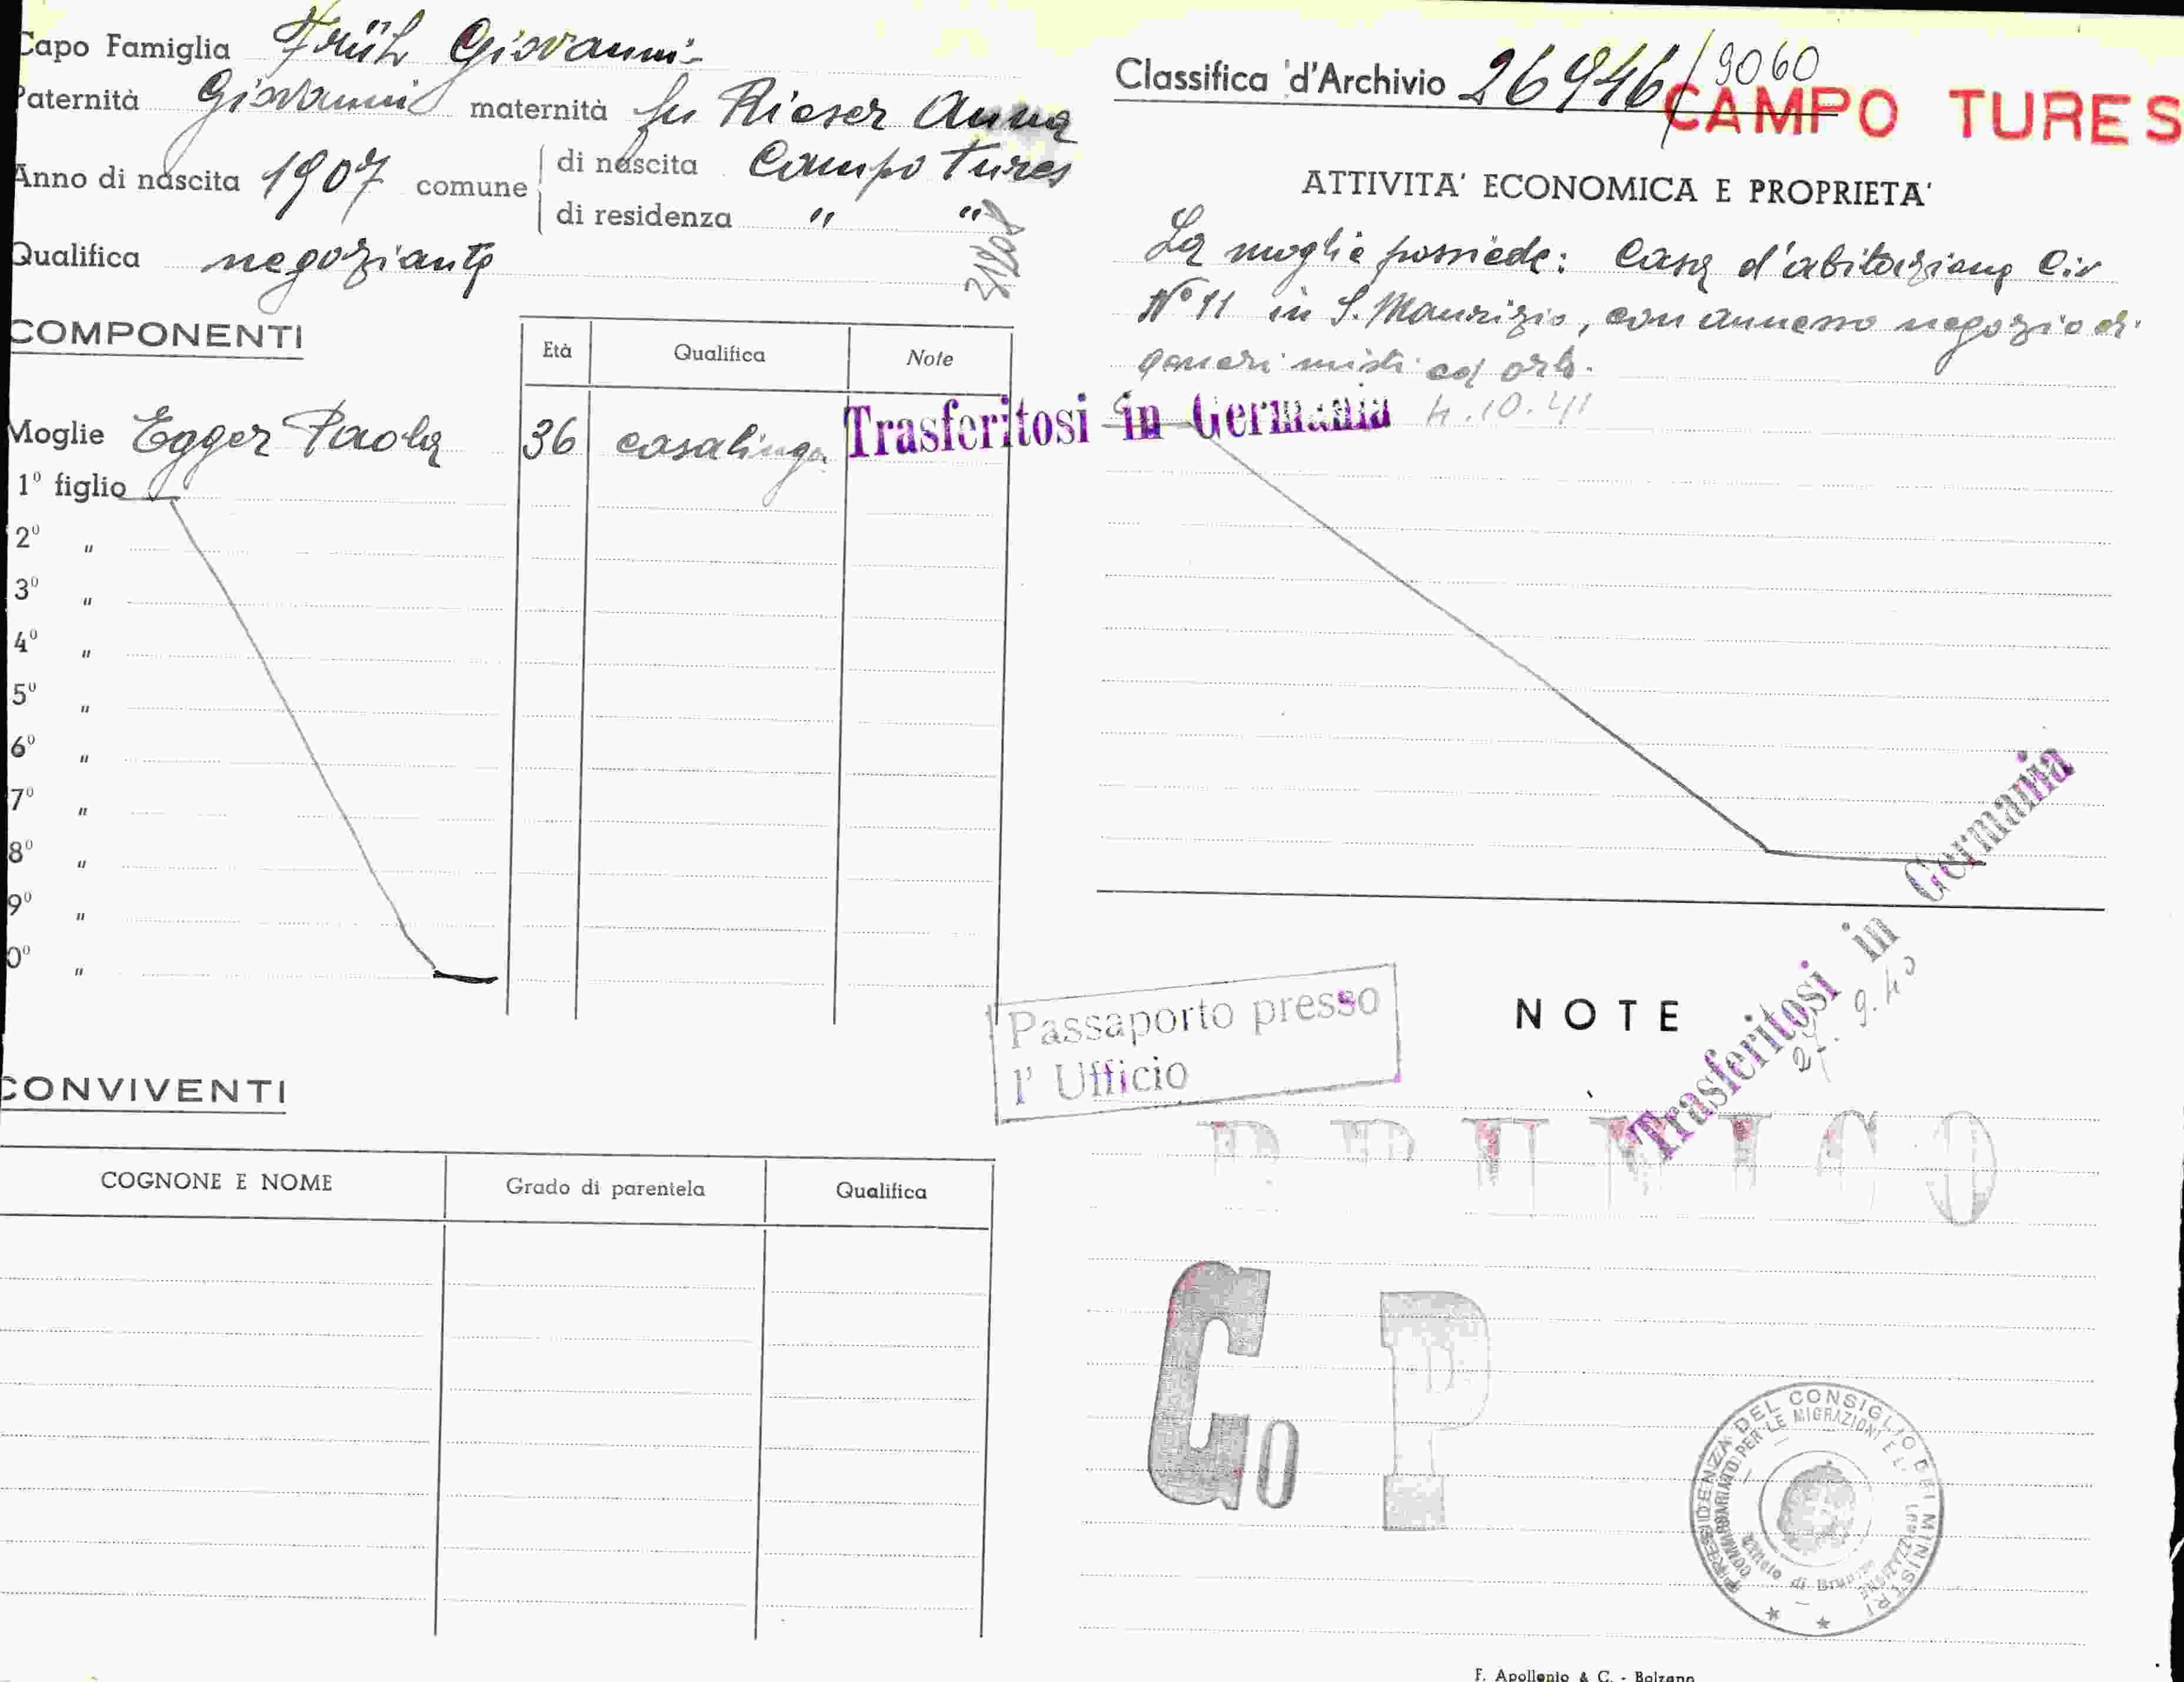 Capo Famiglia Früh Giovanni
Paternità Giovanni maternità fu Rieser Anna
Anno di nascita 1907 comune di nascita Campo Tures
di residenza " "
Qualifica negoziante
COMPONENTI
Età Qualifica Note
Moglie Egger Paola 36 casalinga Trasferitosi in Germania 4.10.41
1º figlio
2º "
3º "
4º "
5º "
6º "
7º "
8º "
9º "
0º "
CONVIVENTI
COGNONE E NOME Grado di parentela Qualifica
Classifica d'Archivio 26946/9060
CAMPO TURES
ATTIVITA' ECONOMICA E PROPRIETA'
La moglie possiede: Casa d'abitazione Civ
Nº 11 in S. Maurizio, con annesso negozio di
generi misti ed orto.
Trasferitosi in Germania
9.40
Passaporto presso
l' Ufficio
NOTE
BRUNICO
Go P
PRESIDENZA DEL CONSIGLIO DEI MINISTRI
COMMISSARIATO PER LE MIGRAZIONI E L
di Brunico
F. Apollonio & C. - Bolzano